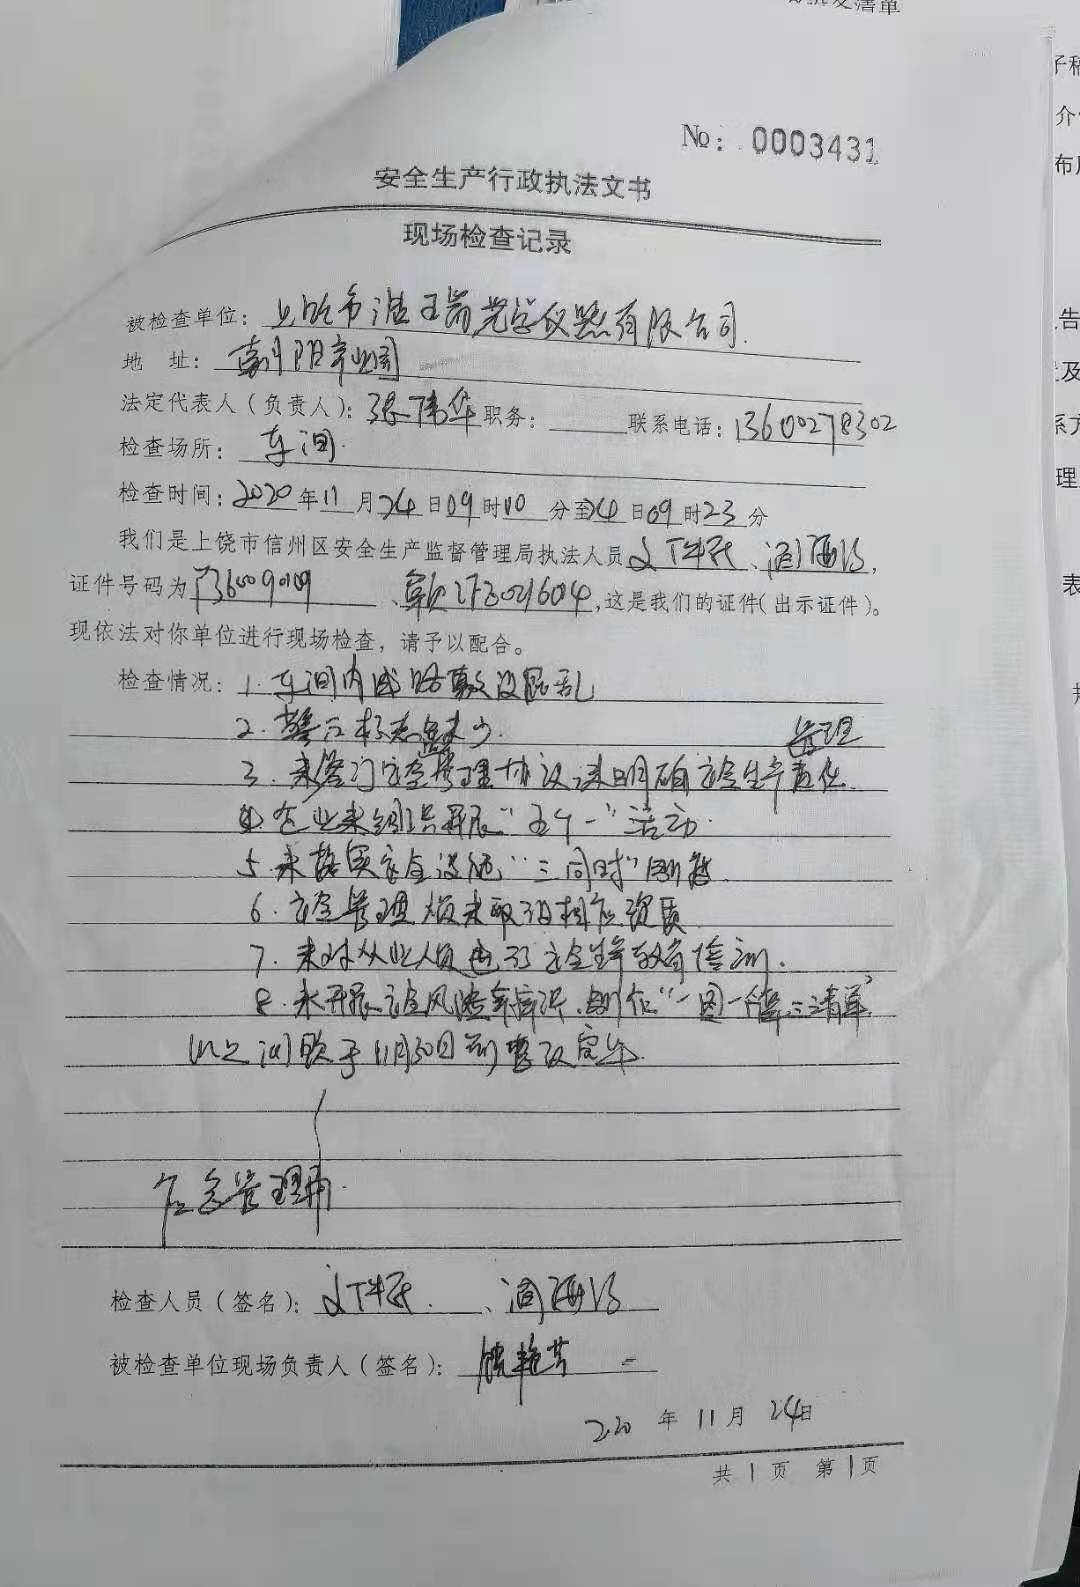 No: 0003431
安全生产行政执法文书
现场检查记录
被检查单位: 上饶市 光学仪器有限公司
地 址: 朝阳产业园
法定代表人(负责人): 张伟华 职务: 联系电话: 13600278302
检查场所: 车间
检查时间: 2020年11月24日09时10分至24日09时23分
我们是上饶市信州区安全生产监督管理局执法人员 、
证件号码为 、 ,这是我们的证件(出示证件)。
现依法对你单位进行现场检查,请予以配合。
检查情况: 1.车间内线路敷设混乱
2.警示标志缺少.
管理
3.未签订安全管理协议未明确安全生产责任.
4.企业未组织开展"五个一"活动.
5.未落实安全设施"三同时"制度
6.安全管理人员未取得相应资质
7.未对从业人员进行安全生产教育培训.
8.未开展安全风险辨识,制作"一图一牌三清单"
以上问题于11月30日前整改完毕.
应急管理局.
检查人员(签名): 、
被检查单位现场负责人(签名):
2020年11月24日
共1页 第1页